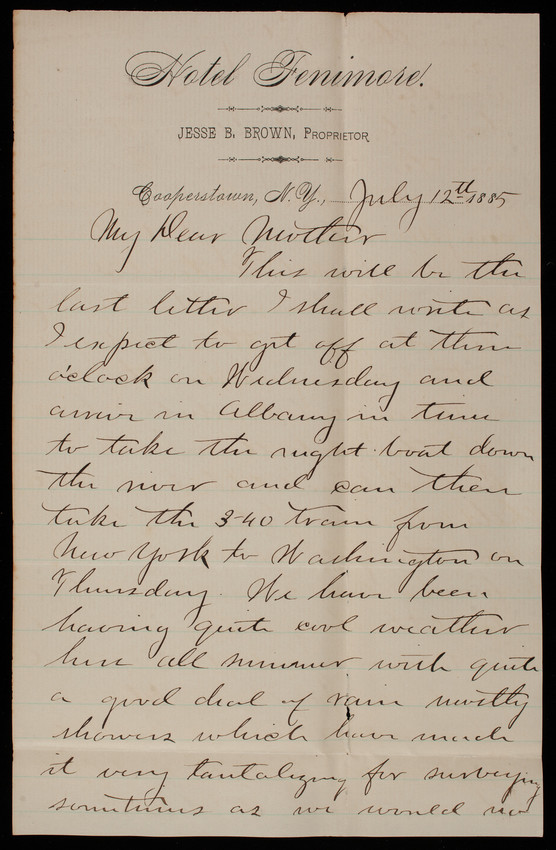 Hotel Fenimore.
JESSE B. BROWN, PROPRIETOR
Cooperstown, N.Y., July 12th 1885
My Dear Mother
This will be the
last letter I shall write as
I expect to get off at three
o'clock on Wednesday and
arrive in Albany in time
to take the night boat down
the river and can then
take the 3-40 train from
New York to Washington on
Thursday. We have been
having quite cool weather
here all summer with quite
a good deal of rain mostly
showers which have made
it very tantalizing for surveying
sometimes as we would no